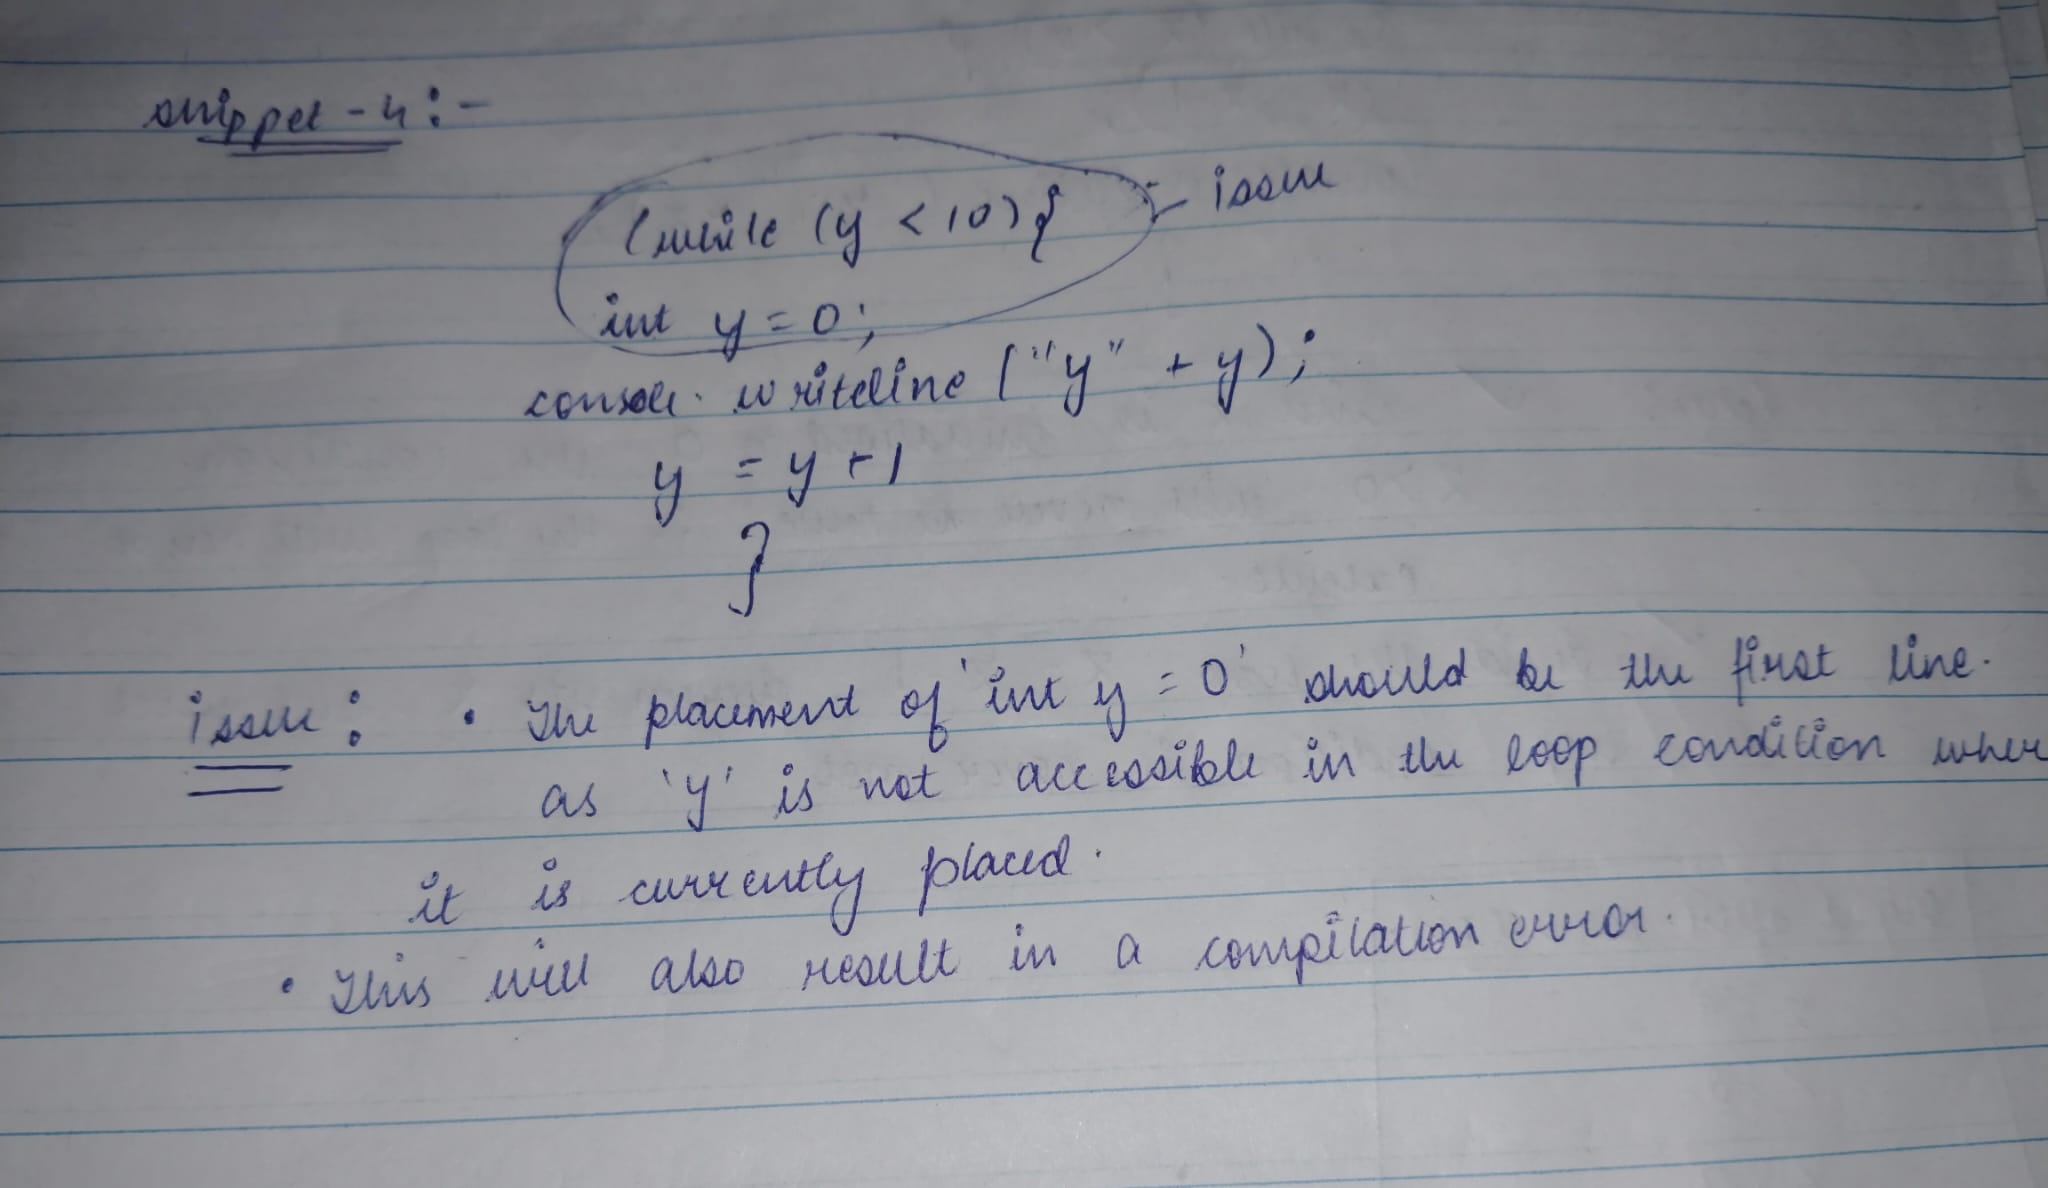 snippet - 4 :-
while (y < 10) { - issue
int y = 0;
console. writeline ("y" + y);
y = y + 1
}
issue : • The placement of 'int y = 0' should be the first line.
as 'y' is not accessible in the loop condition wher
it is currently placed.
• This will also result in a compilation error.